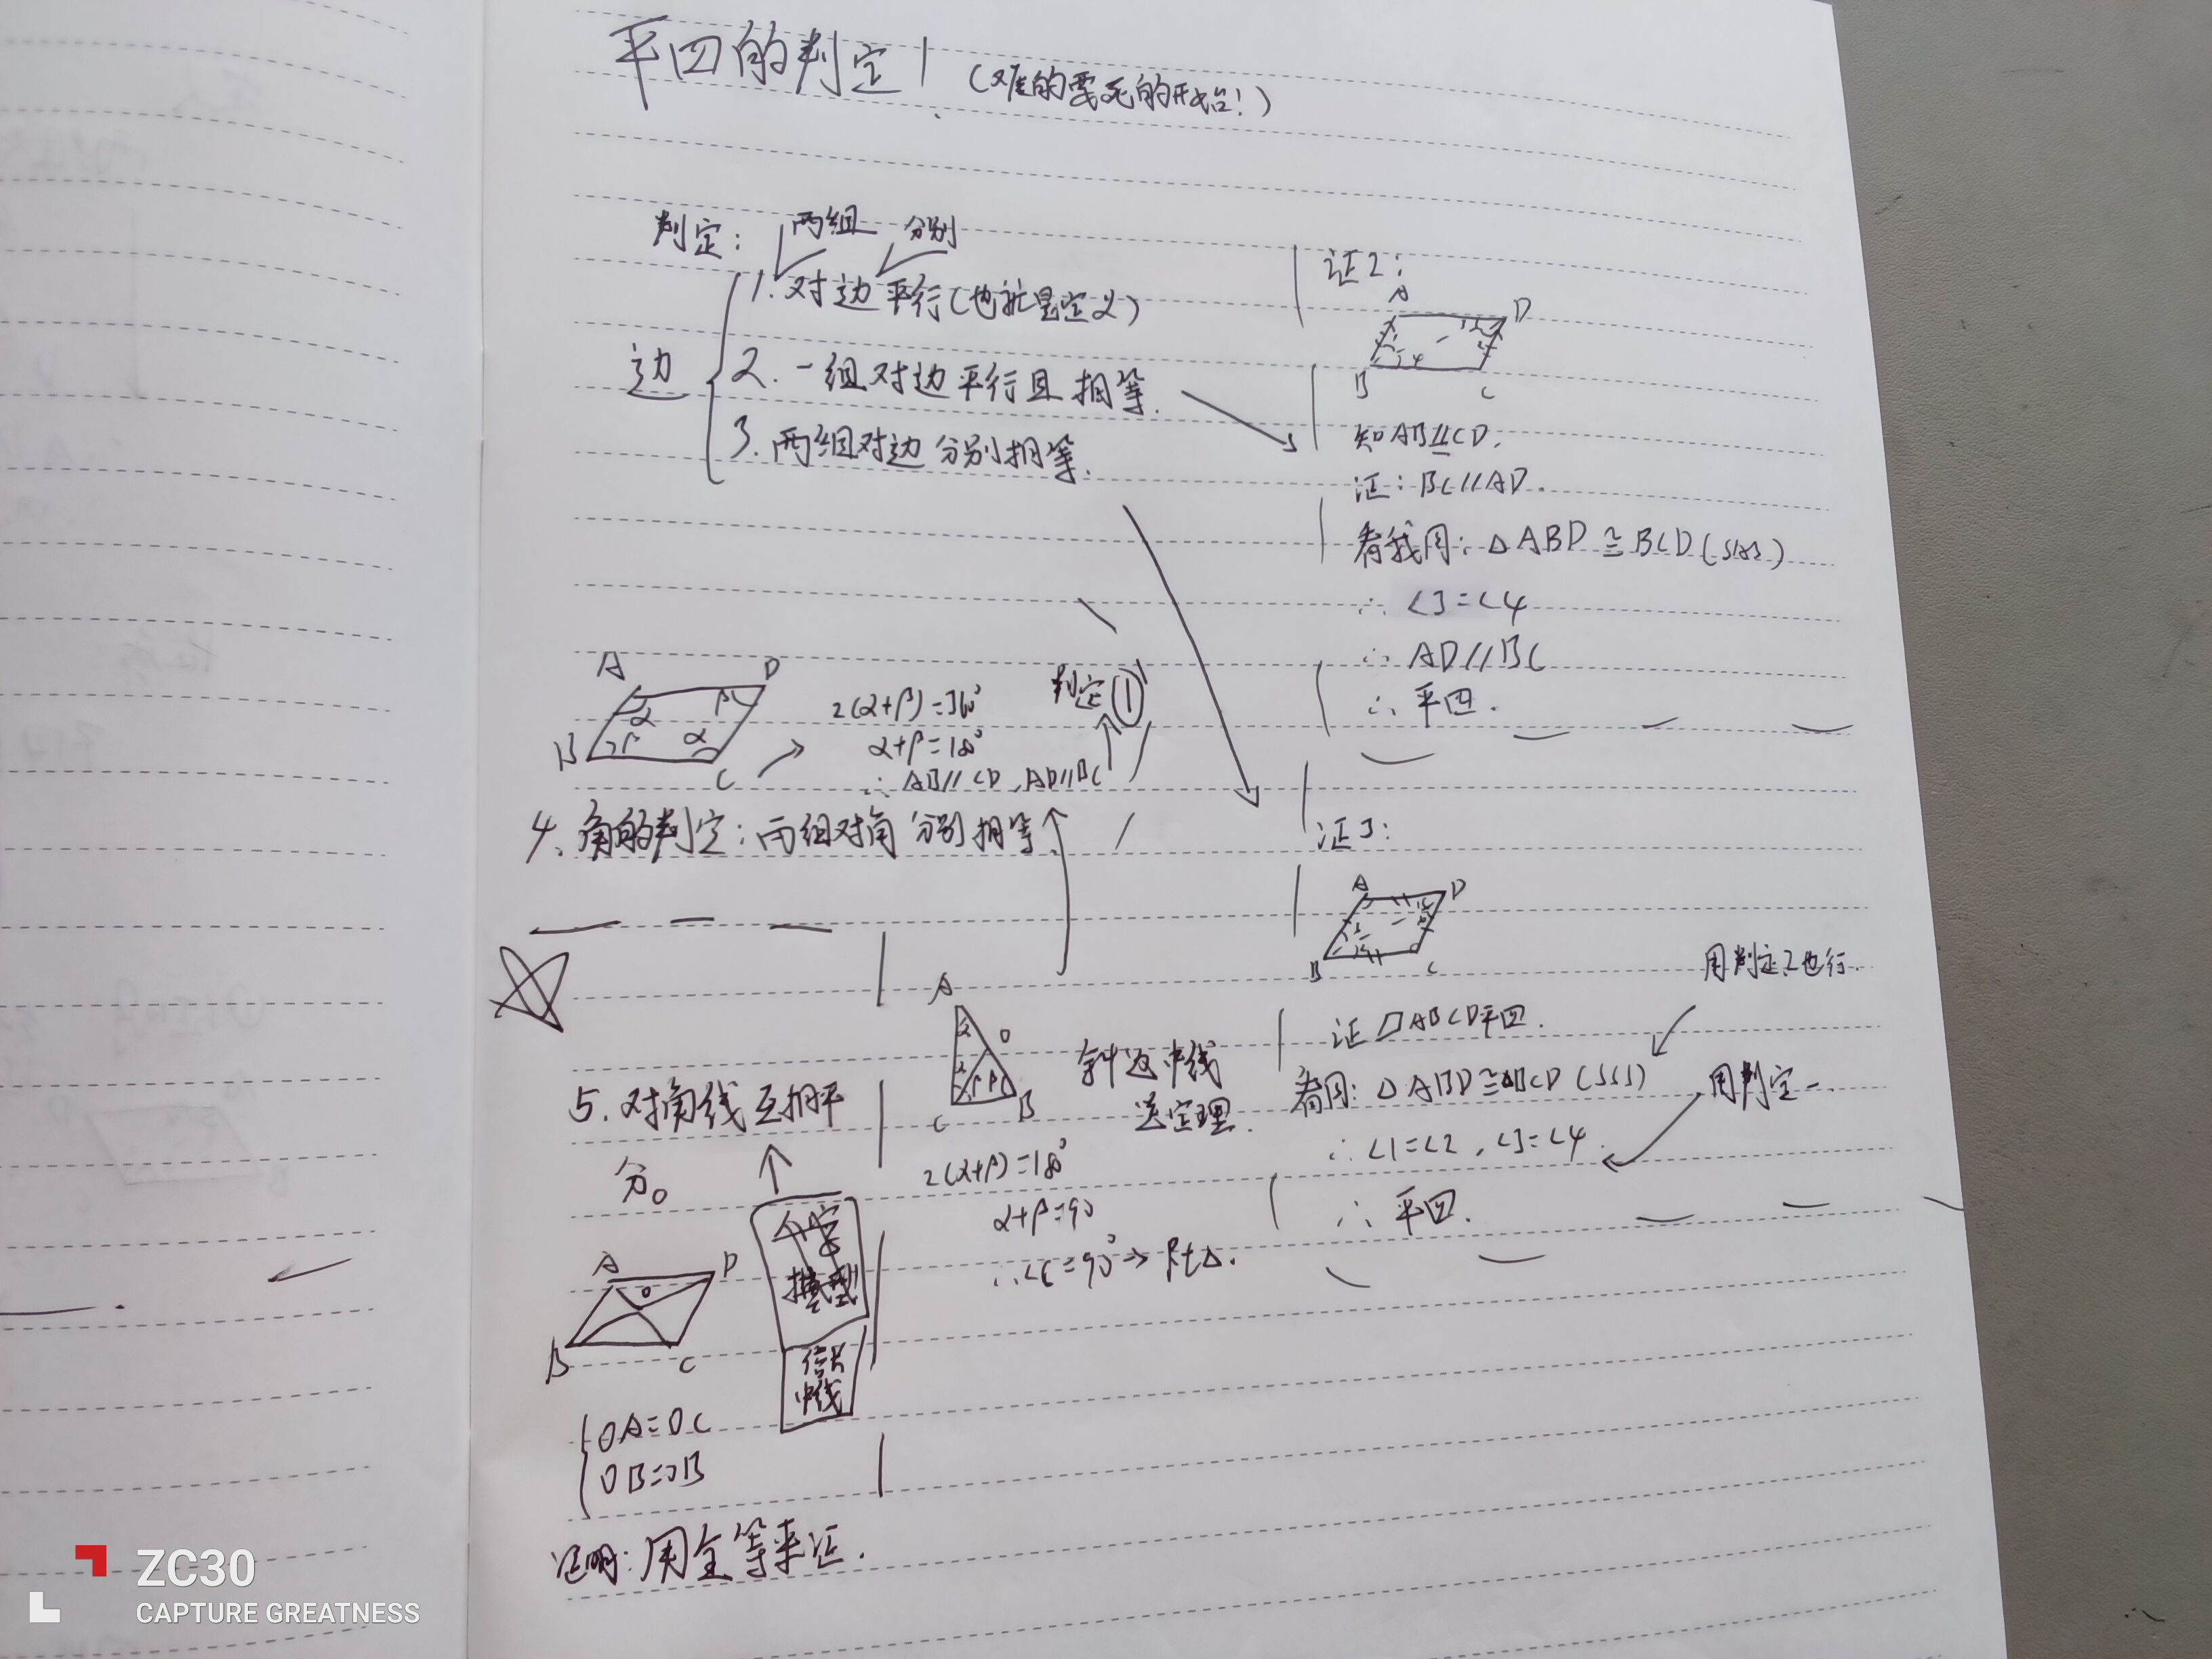 平四的判定1 (难的要死的开始!)
判定: 两组 分别
1. 对边平行(也就是定义)
边
2. 一组对边平行且相等.
3. 两组对边分别相等.
A D
α β
β α
B C
2(α+β)=360°
α+β=180°
∴ AB//CD, AD//BC
判定①
4. 角的判定:两组对角分别相等.
5. 对角线互相平
分。
八字
模型
倍长
中线
A D
O
B C
OA=OC
OB=OB
证明: 用全等来证.
A
D
C B
斜边中线
逆定理.
2(α+β)=180°
α+β=90
∴∠C=90°→Rt△.
证2:
A D
B C
知AB//CD.
证: BC//AD.
看我用: △ABD≌BCD(SAS)
∴ ∠3=∠4
∴ AD//BC
∴ 平四.
证3:
A D
B C
用判定2也行.
证▱ABCD平四.
看用: △ABD≌△BCD(SSS)
用判定一.
∴ ∠1=∠2, ∠3=∠4.
∴ 平四.
ZC30
CAPTURE GREATNESS